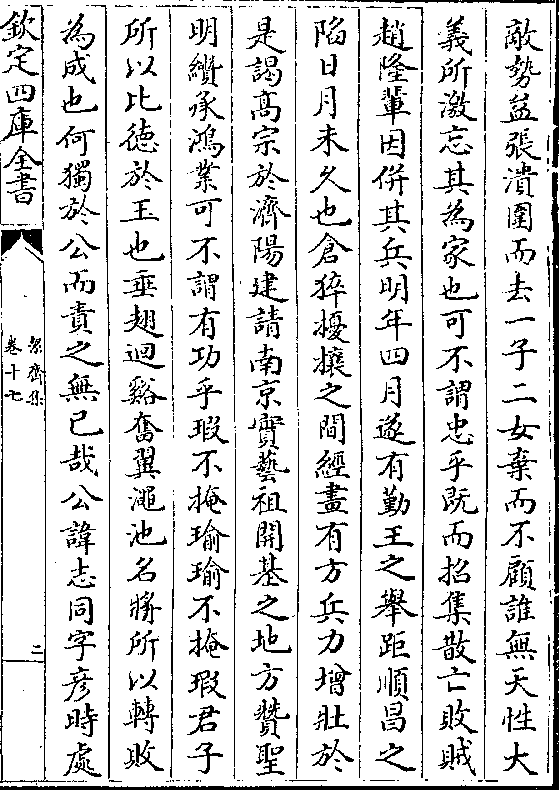 敵勢益張潰圍而去一子二女棄而不顧誰無天性大
義所激忘其為家也可不謂忠乎既而招集散亡敗賊
趙隆輩因併其兵明年四月遂有勤王之舉距順昌之
陷日月未久也倉猝擾攘之間經畫有方兵力增壯於
是謁高宗於濟陽建請南京實藝祖開基之地方贊聖
明纘承鴻業可不謂有功乎瑕不掩瑜瑜不掩瑕君子
所以比徳於玉也垂翅迴谿奮翼澠池名將所以轉敗
為成也何獨於公而責之無已哉公諱志同字彦時處
欽定四庫全書
絜齋集
卷十七
二